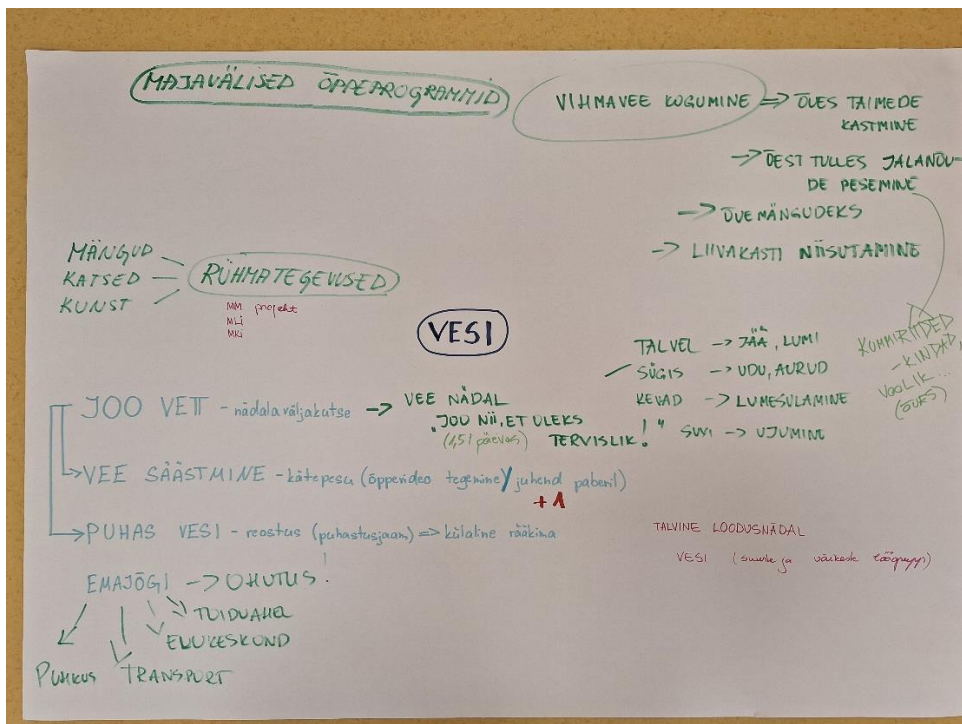 MAJAVÄLISED ÕPPEPROGRAMMID
VIHMAVEE KOGUMINE => ÕUES TAIMEDE
KASTMINE
-> ÕEST TULLES JALANÕU-
DE PESEMINE
-> ÕUEMÄNGUDEKS
-> LIIVAKASTI NIISUTAMINE
MÄNGUD
KATSED
KUNST
RÜHMATEGEVUSED
MM projekt
MLi
MKi
VESI
TALVEL -> JÄÄ, LUMI
SÜGIS -> UDU, AURUD
KEVAD -> LUMESULAMINE
SUVI -> UJUMINE
KUMMIRIIDED
- KINDAD,
VOOLIK...
(ÕUES)
JOO VETT - nädala väljakutse -> VEE NÄDAL
"JOO NII, ET OLEKS
(1,5 l päevas) TERVISLIK!"
VEE SÄÄSTMINE - kätepesu (õppevideo tegemine / juhend paberil)
+1
PUHAS VESI - reostus (puhastusjaam) => külaline rääkima
TALVINE LOODUSNÄDAL
VESI (suurte ja väikeste töögrupp)
EMAJÕGI -> OHUTUS!
TOIDUAHEL
ELUKESKOND
PUHKUS TRANSPORT